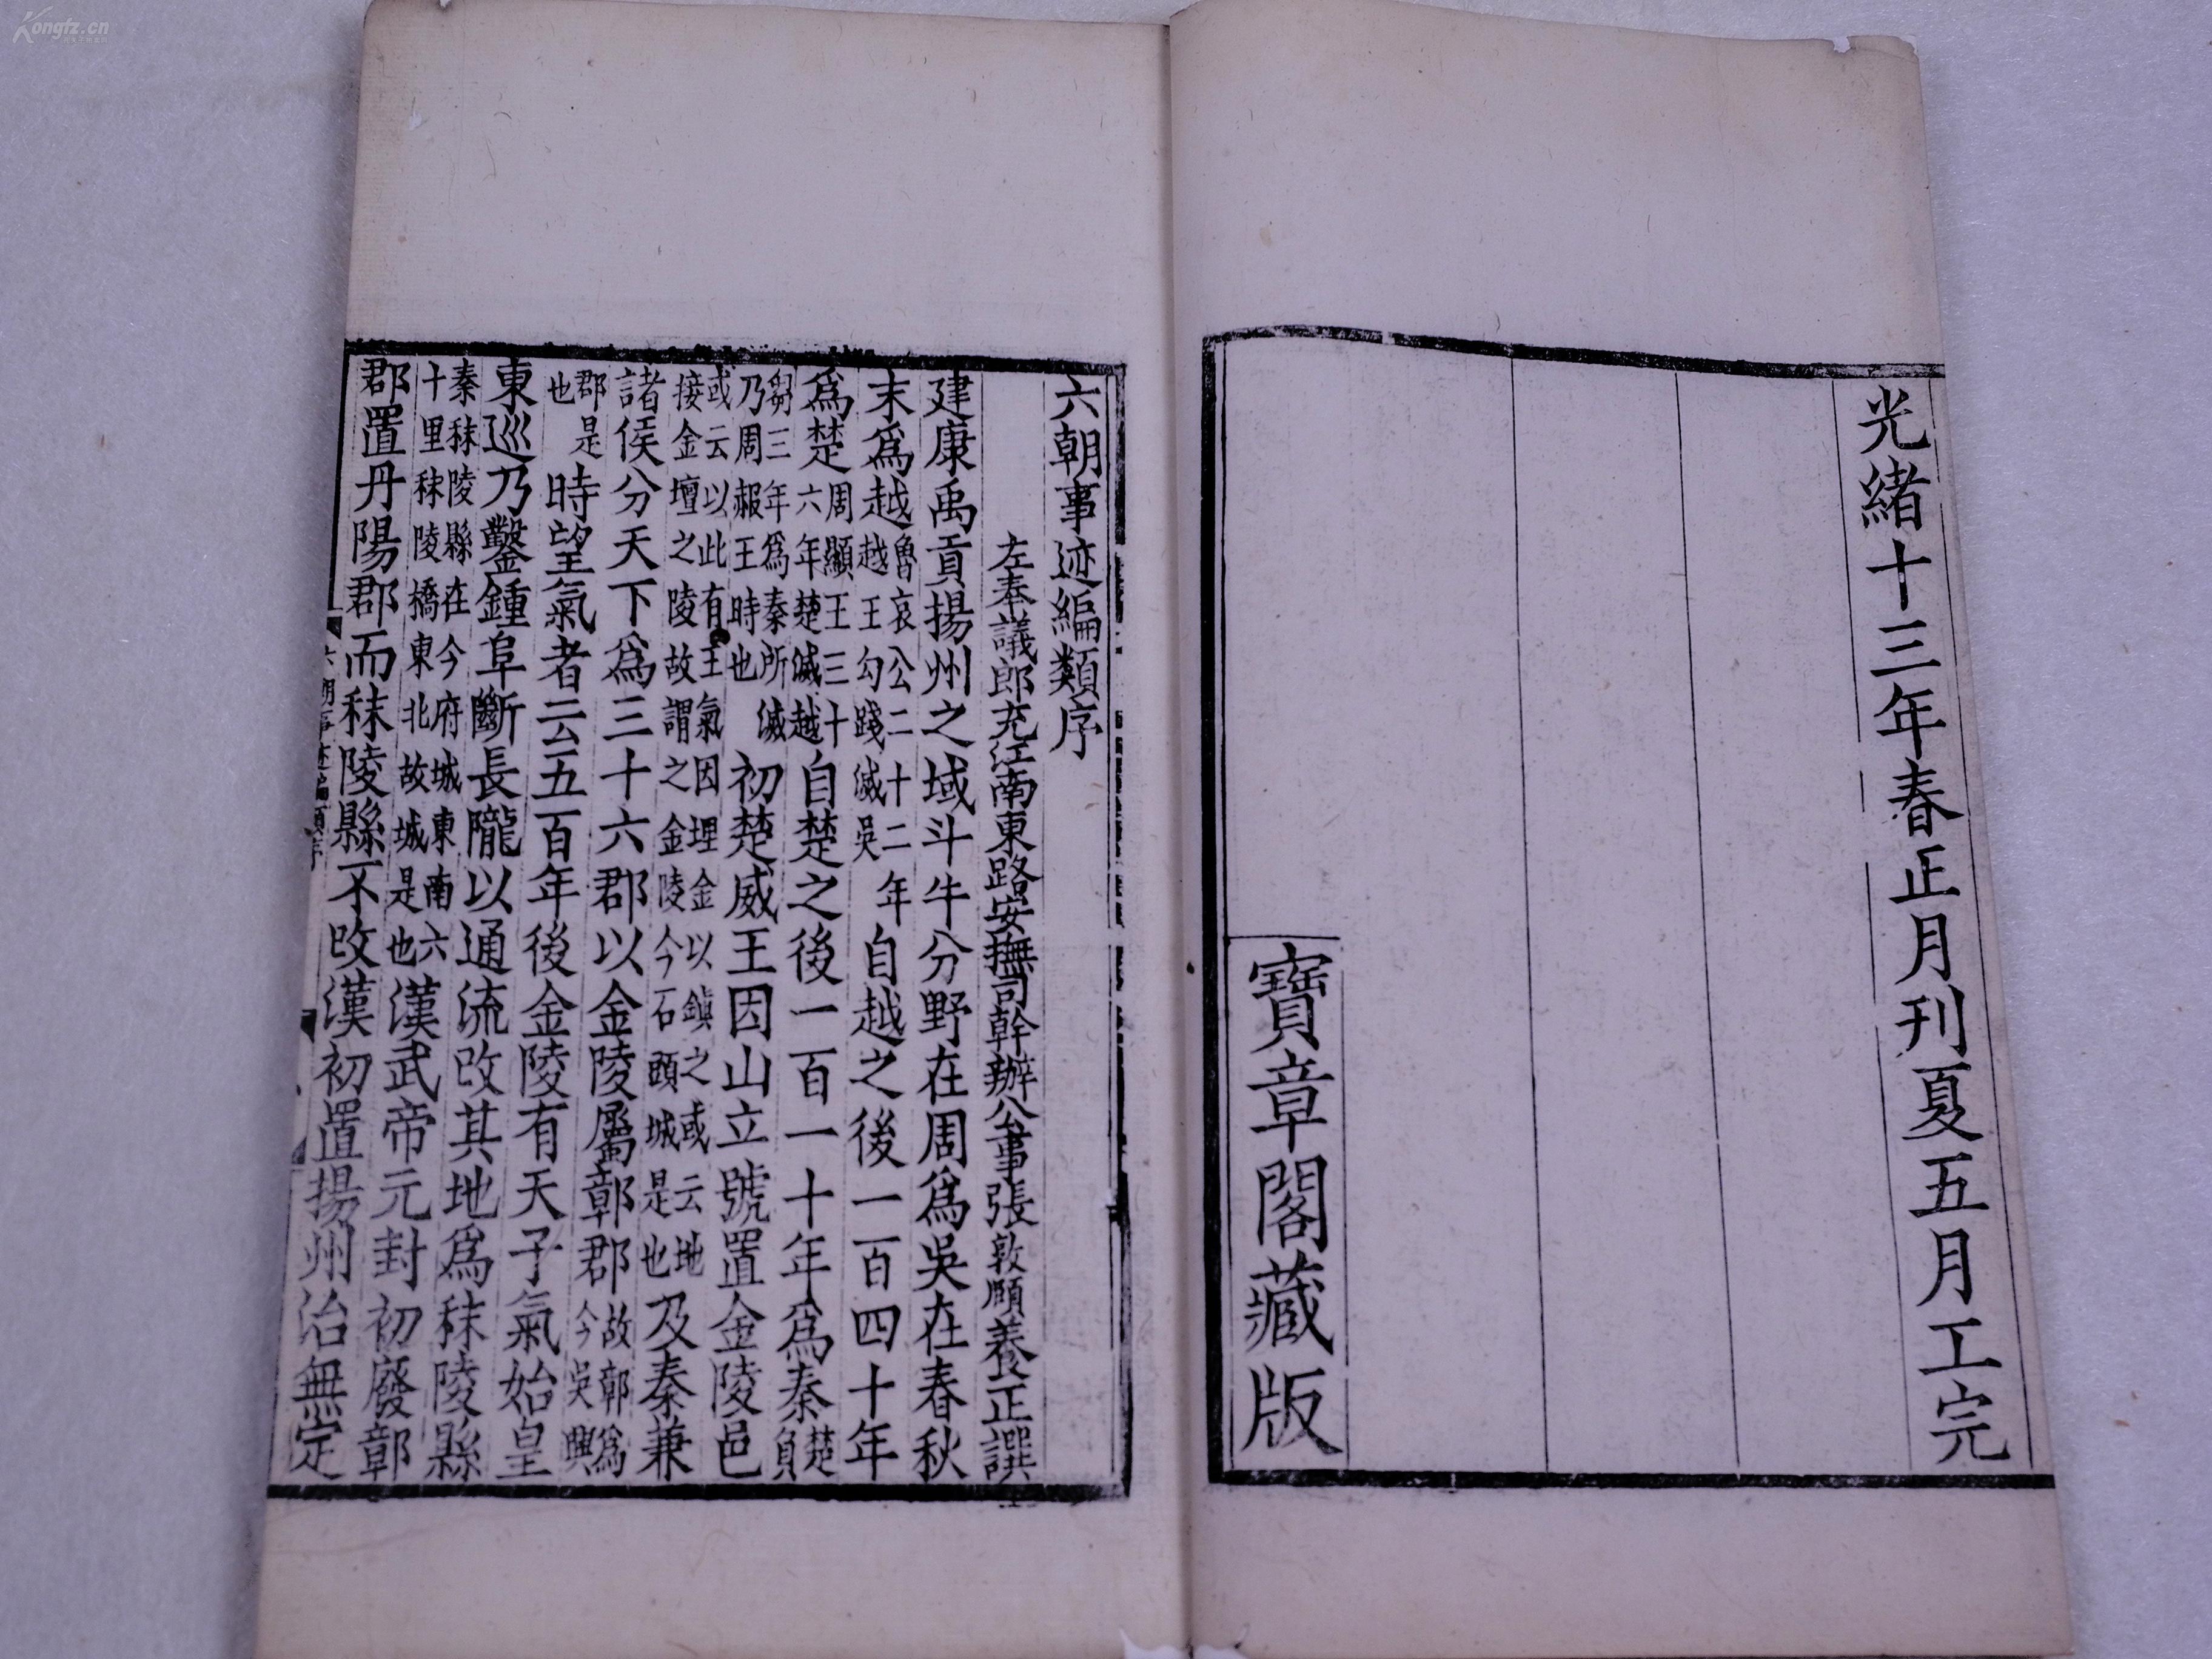 光緒十三年春正月刊夏五月工完
寶章閣藏版
六朝事迹編類序
左奉議郎充江南東路安撫司幹辦公事張敦頤養正譔
建康禹貢揚州之域斗牛分野在周爲吳在春秋
末爲越魯哀公二十二年越王勾踐滅吳自越之後一百四十年
爲楚周顯王三十六年楚滅越自楚之後一百一十年爲秦楚負
芻三年爲秦所滅乃周赧王時也初楚威王因山立號置金陵邑
或云以此有王氣因埋金以鎮之或云地接金壇之陵故謂之金陵今石頭城是也及秦兼
諸侯分天下爲三十六郡以金陵屬鄣郡故鄣爲今吳興
郡是也時望氣者云五百年後金陵有天子氣始皇
東巡乃鑿鍾阜斷長隴以通流改其地爲秣陵縣
秦秣陵縣在今府城東南六十里秣陵橋東北故城是也漢武帝元封初廢鄣
郡置丹陽郡而秣陵縣不改漢初置揚州治無定
六朝事迹編類序
Kongfz.cn